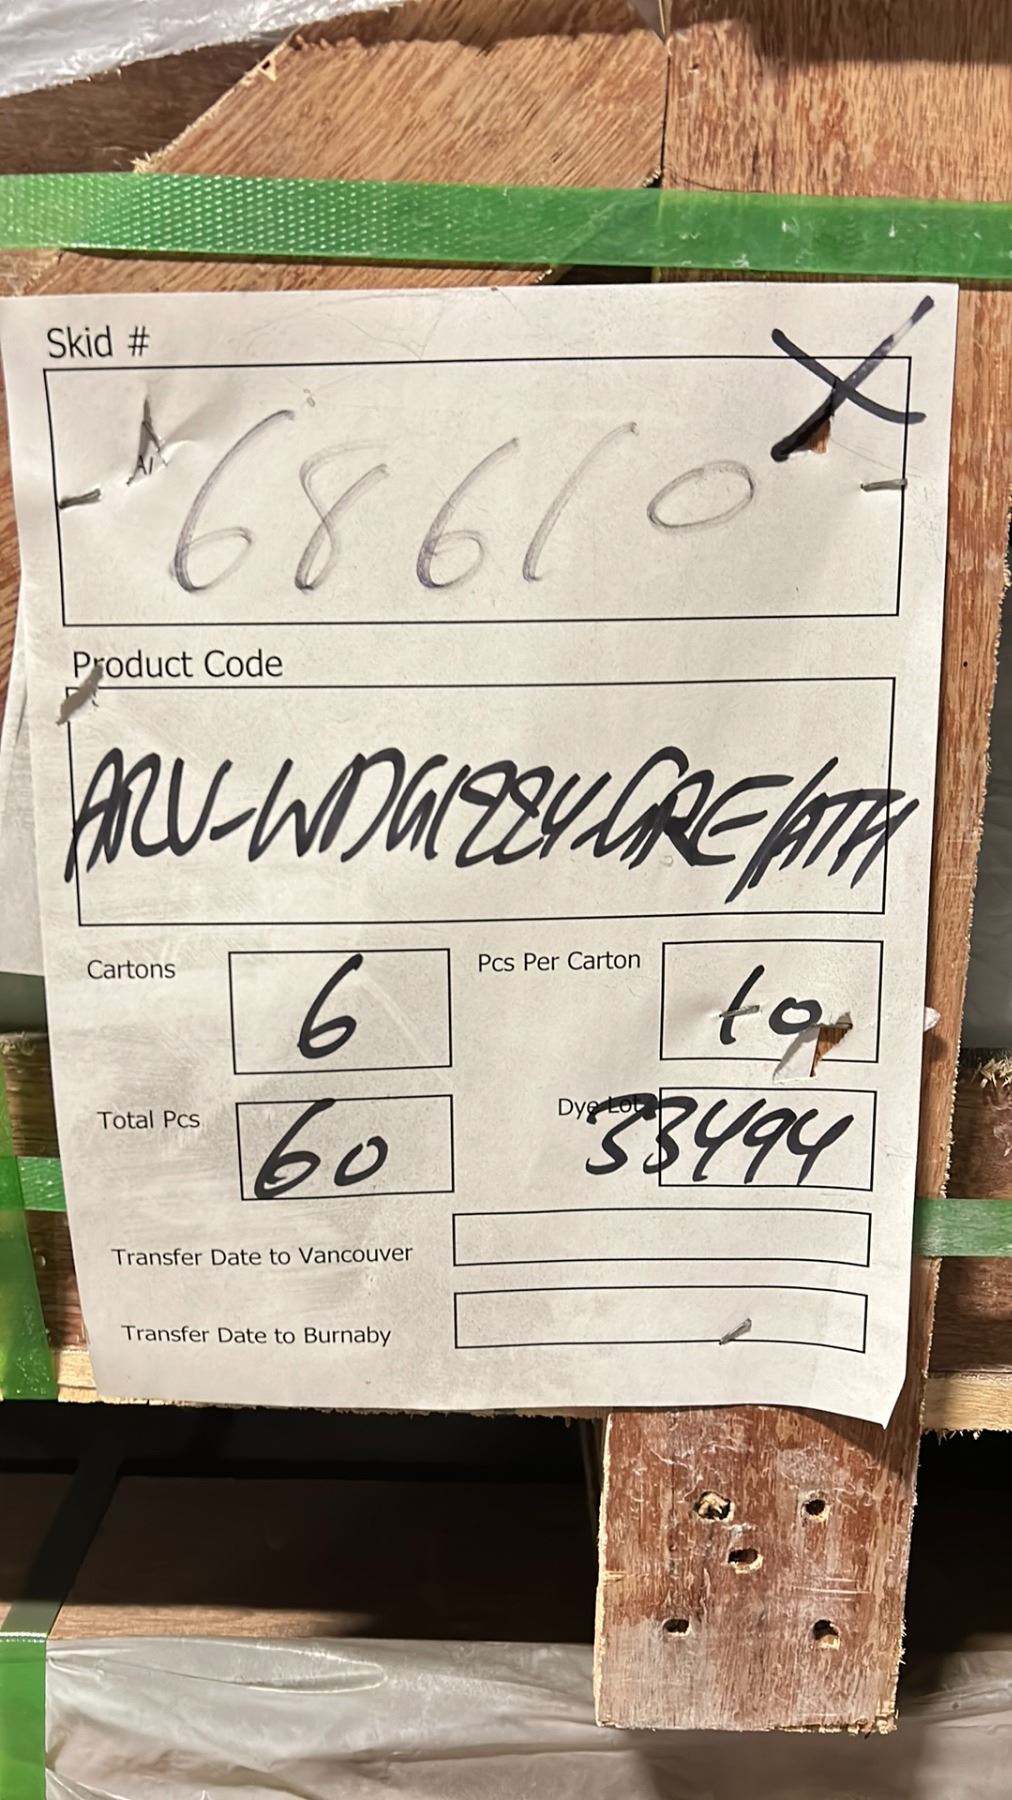 Skid #
68610
X
Product Code
ARU-WDG1884-GRE/ATH
Cartons
6
Pcs Per Carton
10
Total Pcs
60
Dye Lot
33494
Transfer Date to Vancouver
Transfer Date to Burnaby